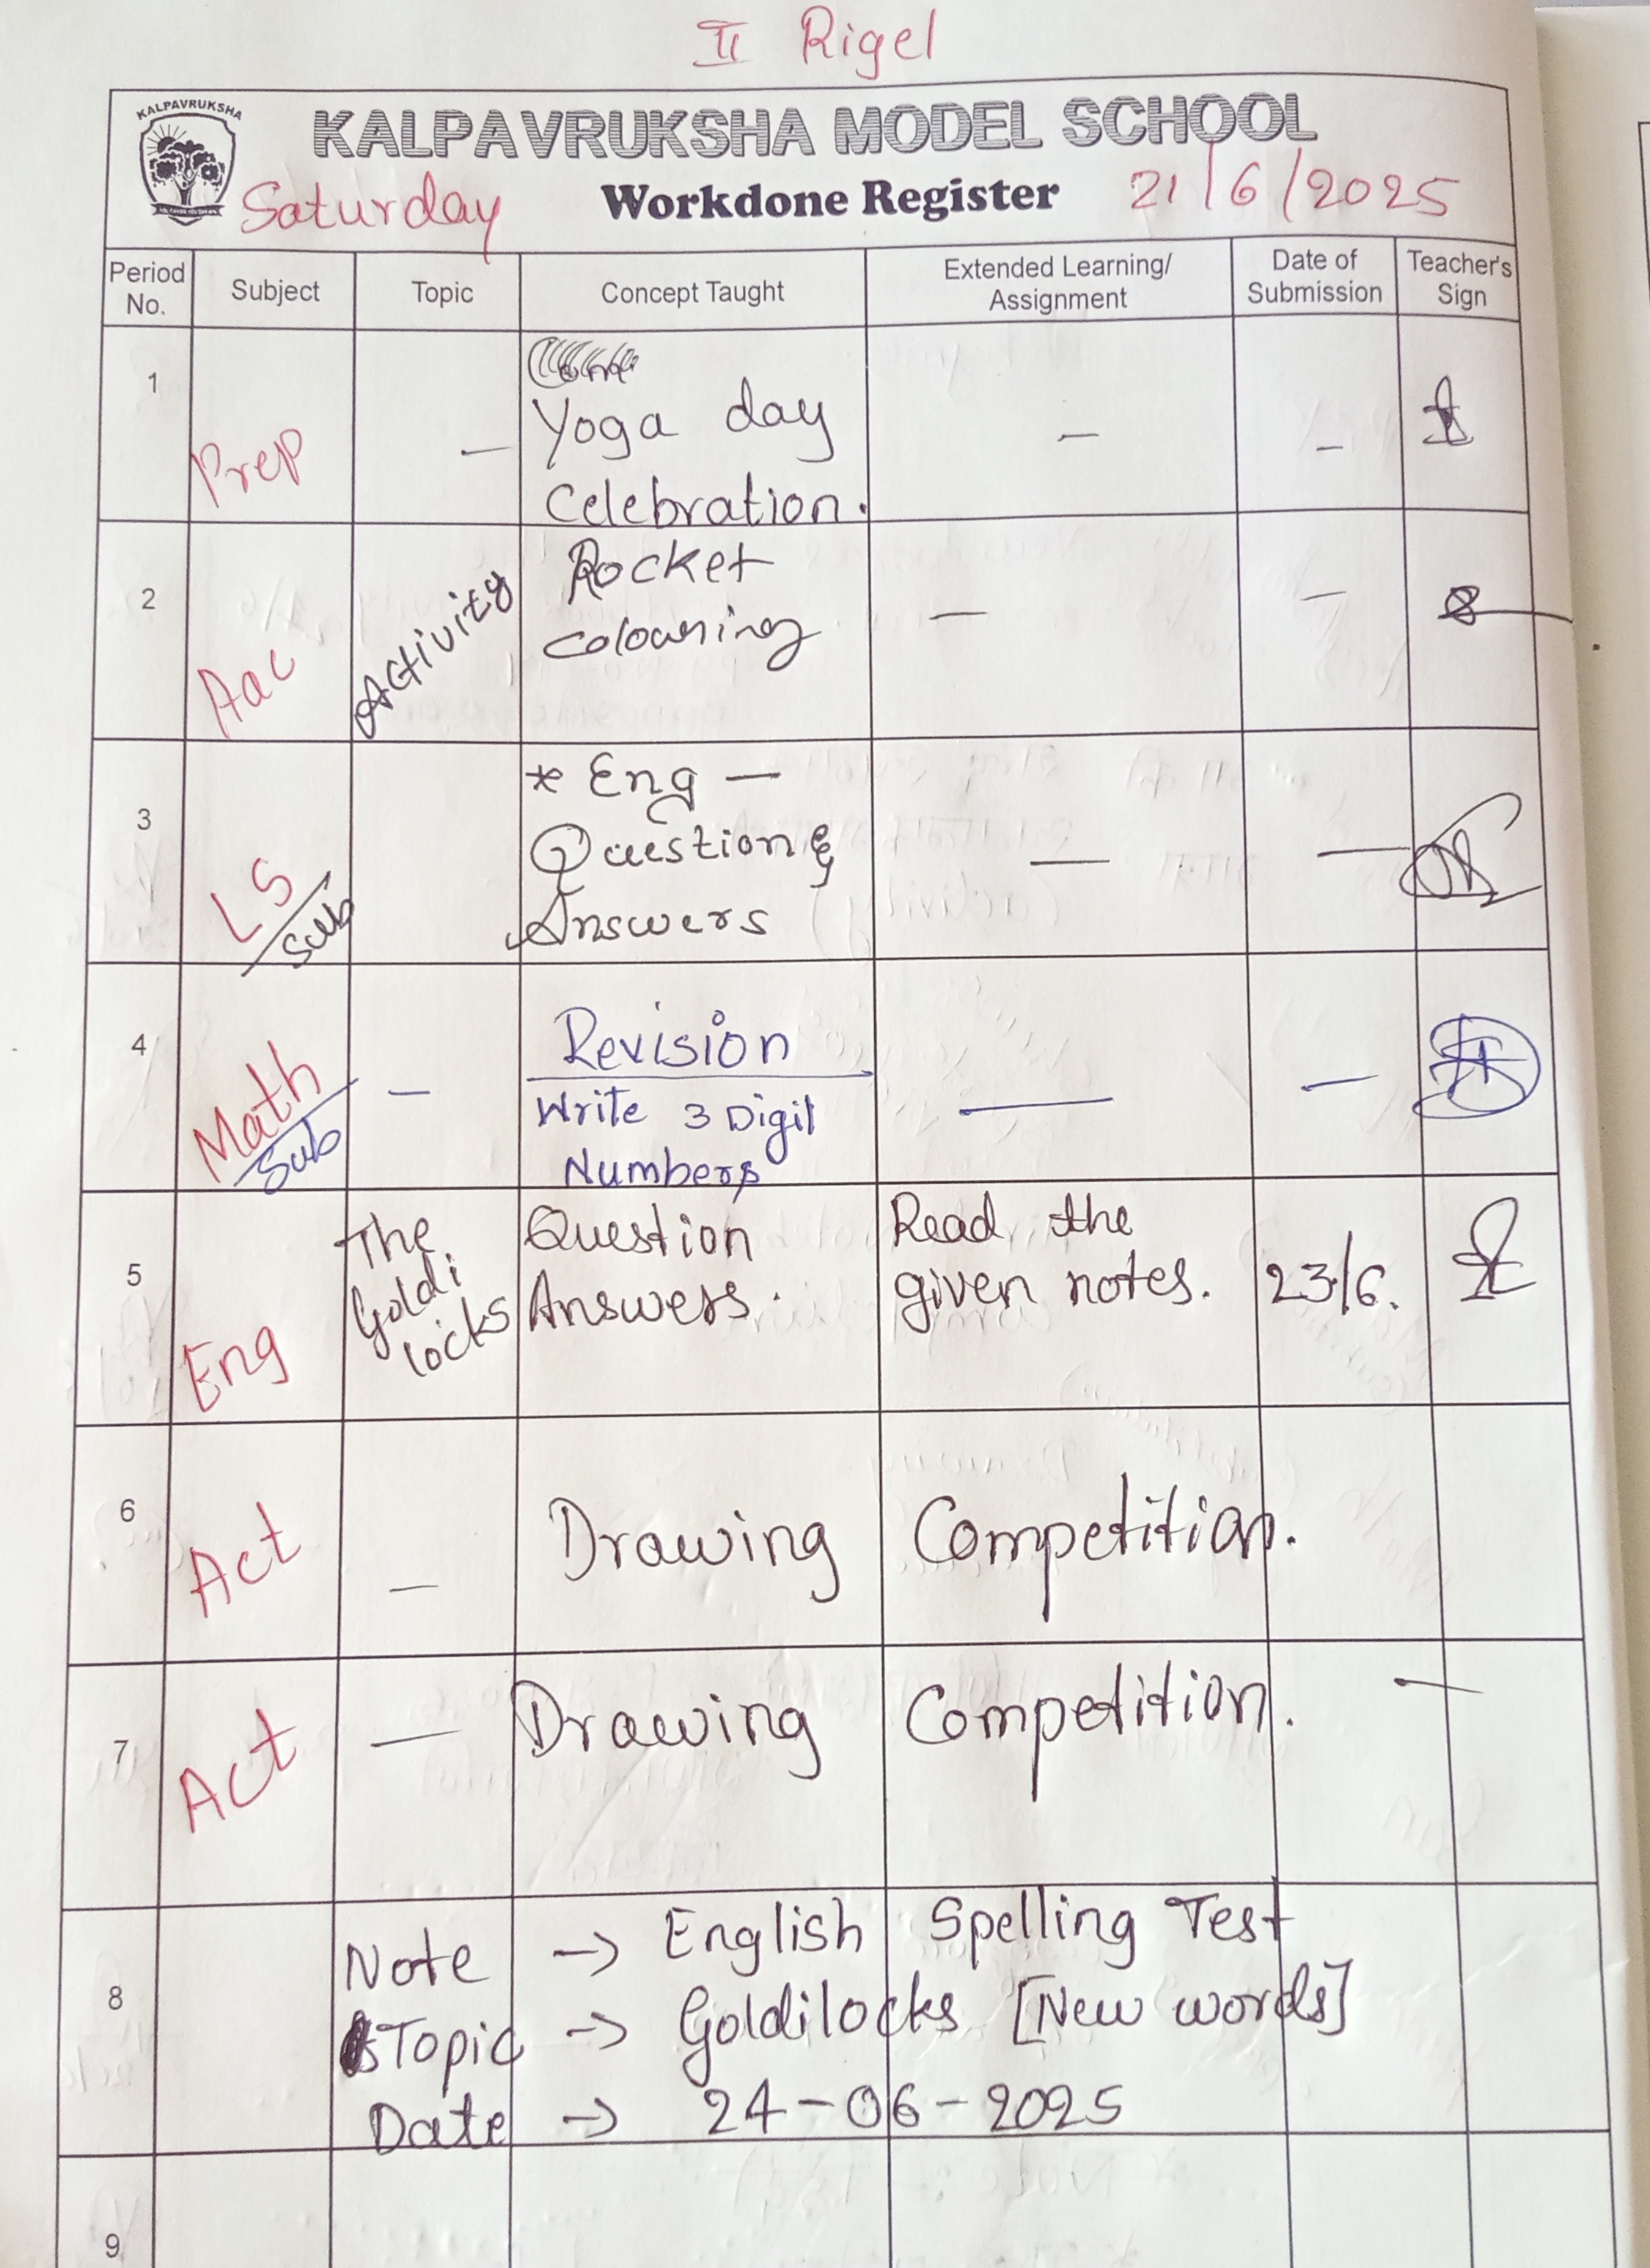 II Rigel
KALPAVRUKSHA
KALPAVRUKSHA MODEL SCHOOL
Saturday Workdone Register 21/6/2025
Period No. Subject Topic Concept Taught Extended Learning/ Assignment Date of Submission Teacher's Sign
1 Prep — Yoga day — –
Celebration.
2 Aac Activity Rocket — –
colouring
3 LS * Eng —
Sub Question & — —
Answers
4 Math — Revision — —
Sub Write 3 Digit
Numbers
5 Eng The Question Read the
Goldi Answers. given notes. 23/6.
locks
6 Act — Drawing Competition.
7 Act — Drawing Competition. —
8 Note → English Spelling Test
Topic → Goldilocks [New words]
Date → 24-06-2025
9